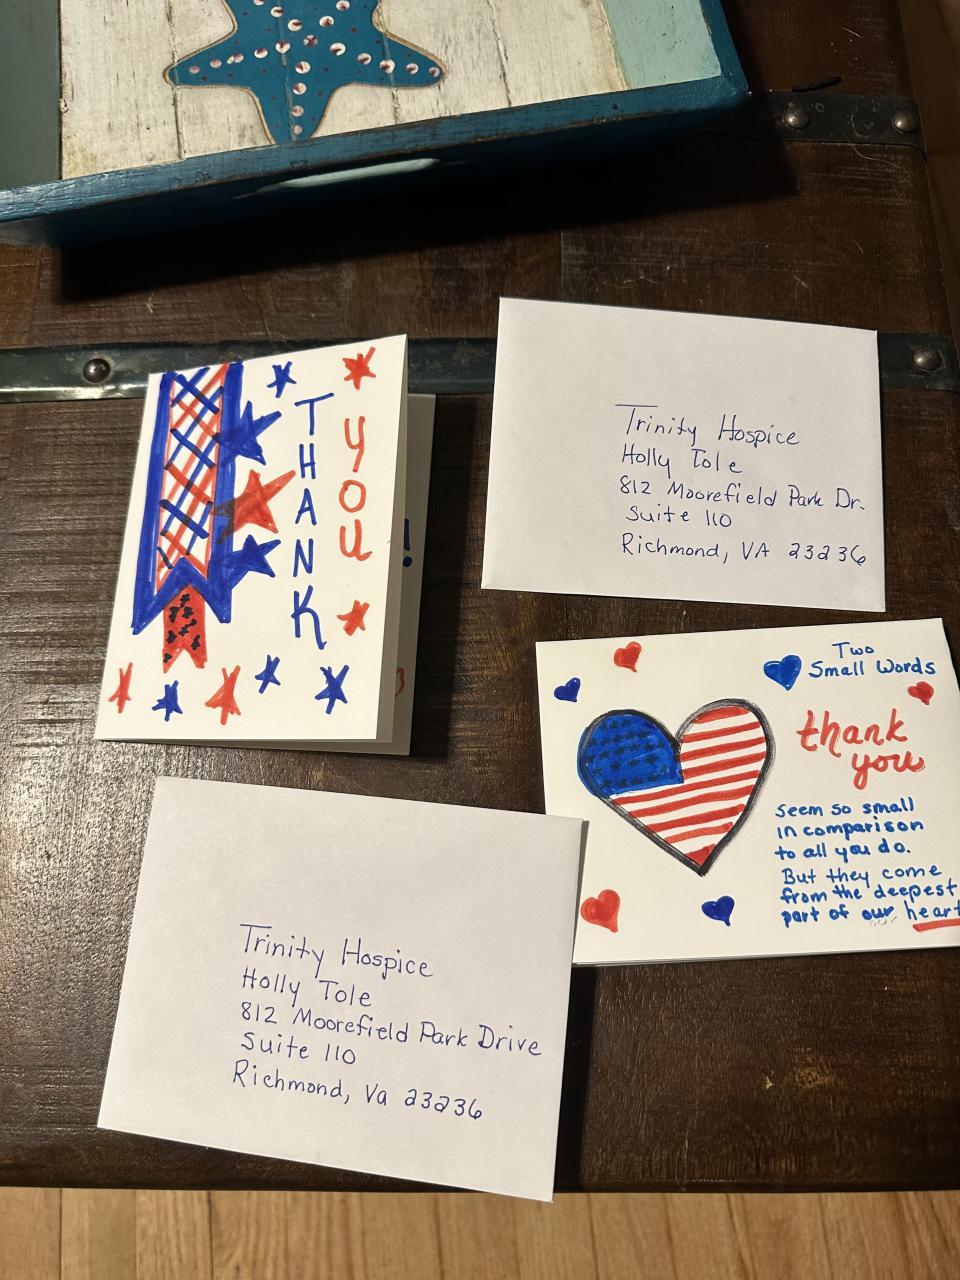 THANK
YOU
!
Trinity Hospice
Holly Tole
812 Moorefield Park Dr.
Suite 110
Richmond, VA 23236
Two
Small Words
thank
you
seem so small
in comparison
to all you do.
But they come
from the deepest
part of our heart
Trinity Hospice
Holly Tole
812 Moorefield Park Drive
Suite 110
Richmond, Va 23236